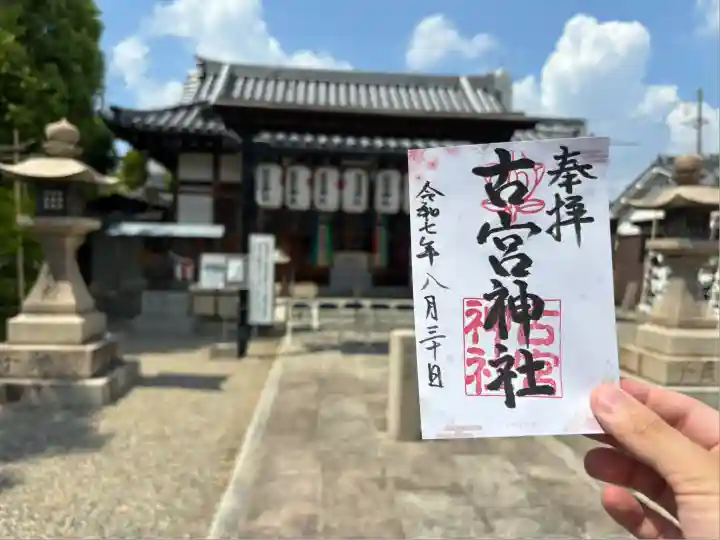 奉拝
古宮神社
古宮神社
令和七年八月三十日